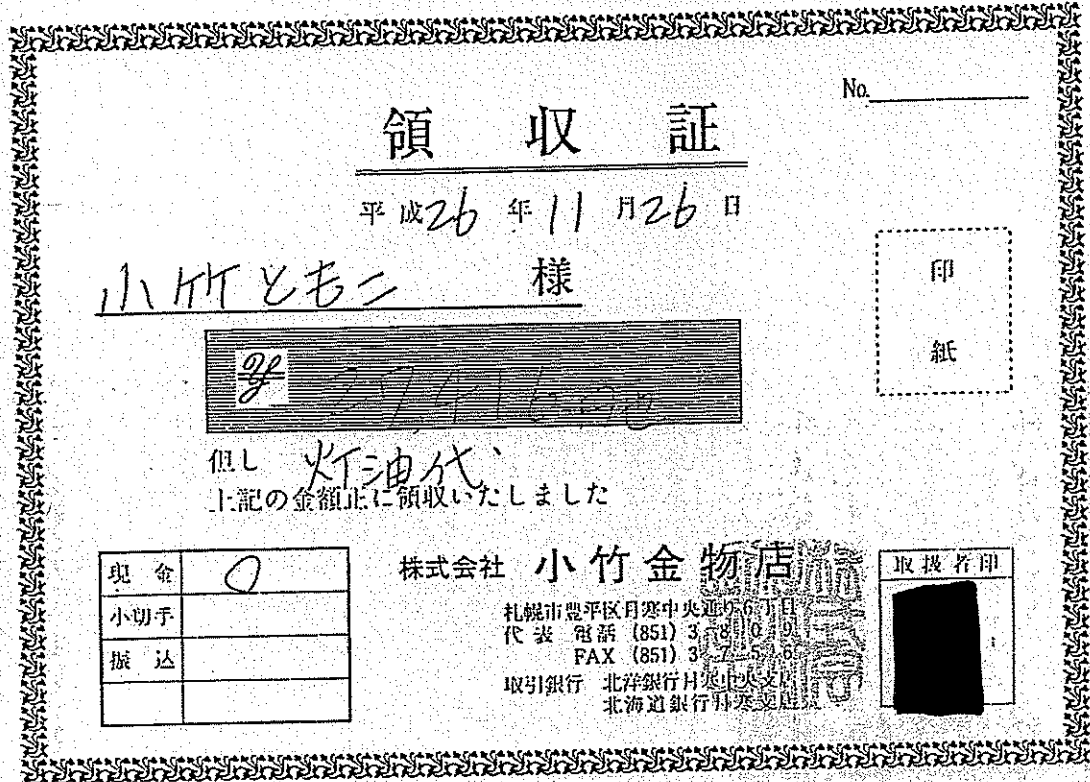 No.
領収証
平成26年11月26日
小竹ともこ 様
印
紙
但し 灯油代
上記の金額正に領収いたしました
現金 ○
小切手
振込
株式会社 小竹金物店
札幌市豊平区月寒中央通り6丁目
代表 電話 (851) 3809
FAX (851) 3756
取引銀行 北洋銀行月寒中央支店
北海道銀行月寒支店
取扱者印